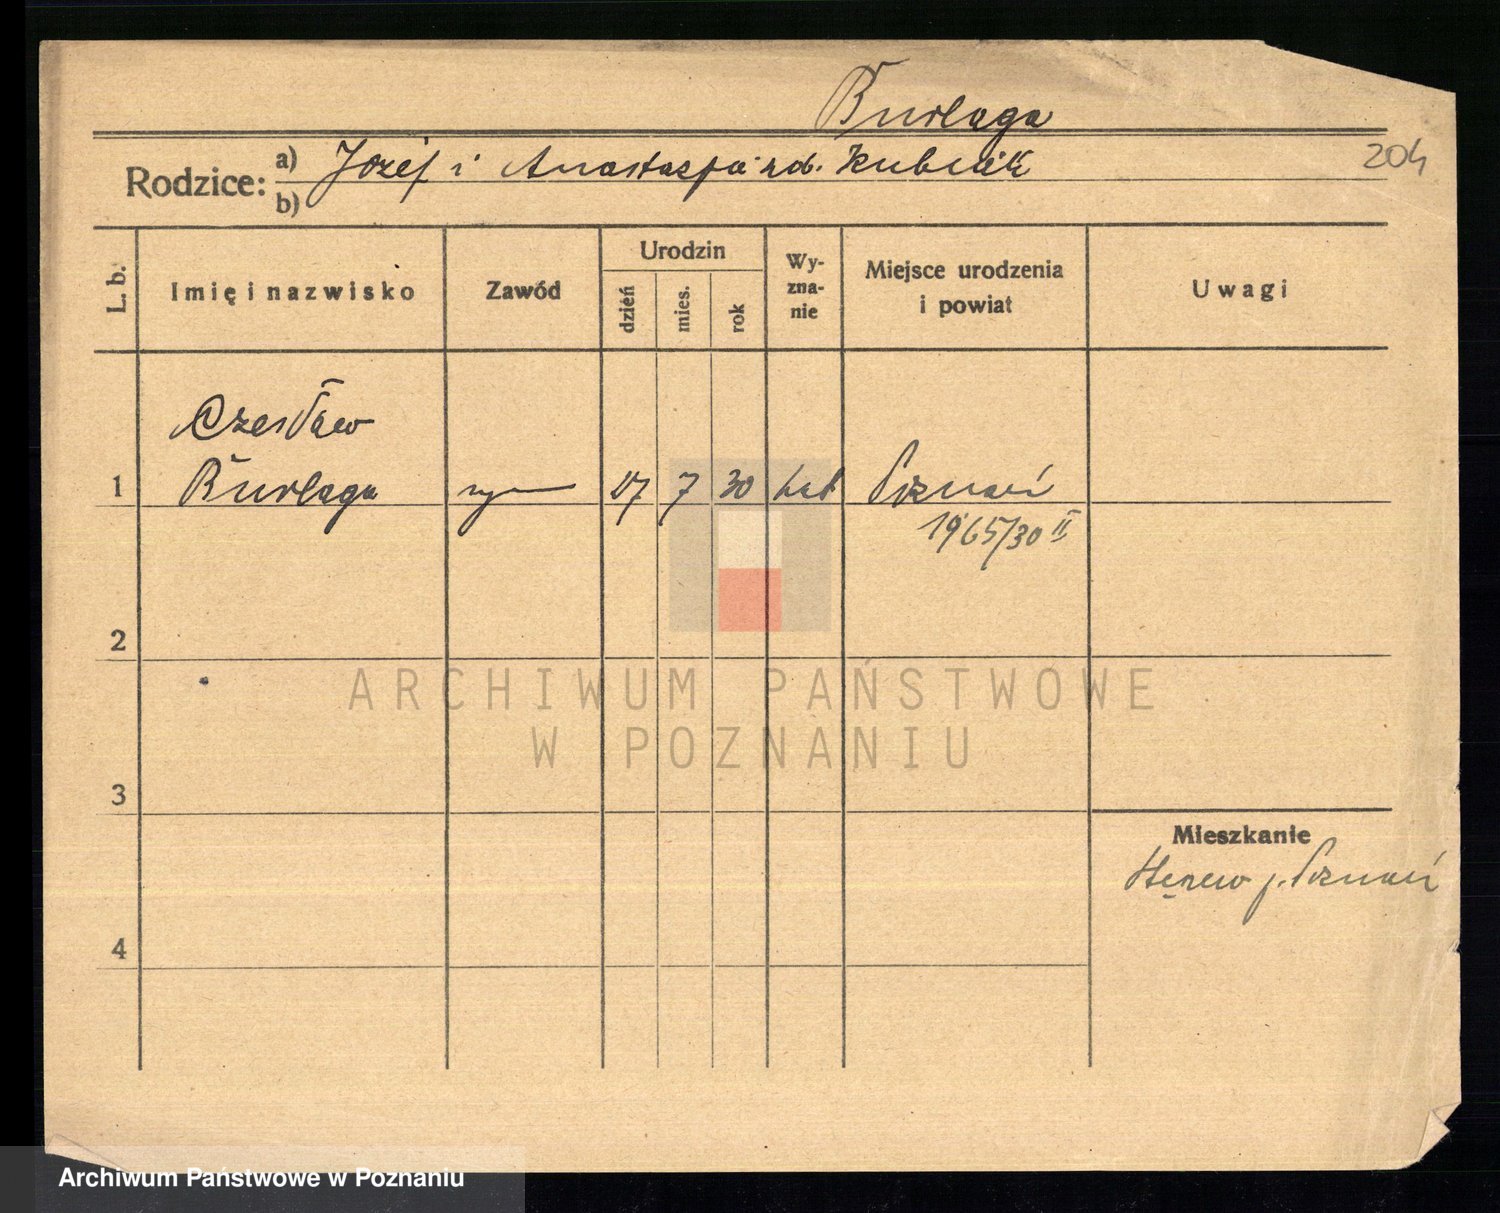 Burlaga
204
Rodzice: a) Józef i Anastazja zd. Kubiak
b)
L. b.
Imię i nazwisko
Zawód
Urodzin
dzień
mies.
rok
Wy-
zna-
nie
Miejsce urodzenia
i powiat
Uwagi
Czesław
1 Burlaga syn 17 7 30 kat Poznań
1965/30 II
2
ARCHIWUM PAŃSTWOWE
W POZNANIU
3
Mieszkanie
p. Poznań
4
Archiwum Państwowe w Poznaniu